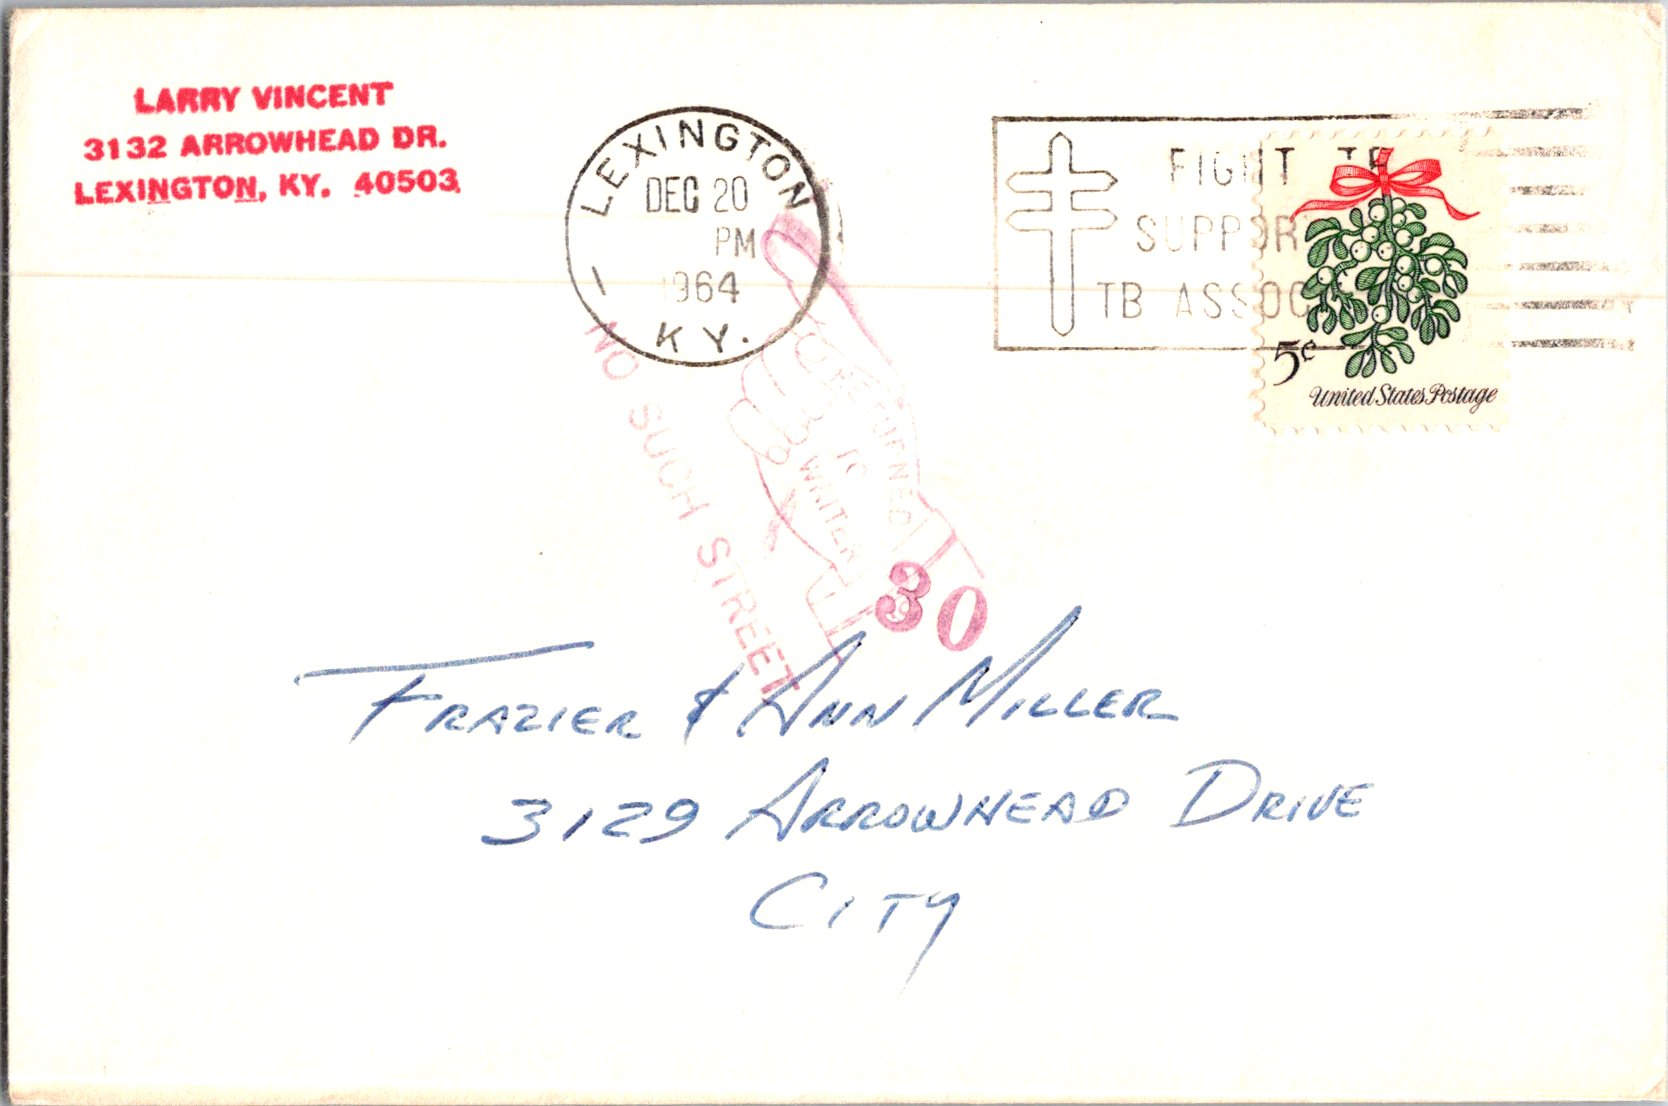 LARRY VINCENT
3132 ARROWHEAD DR.
LEXINGTON, KY. 40503
LEXINGTON
DEC 20
PM
1964
KY.
FIGHT TB
SUPPORT
TB ASSOC
5¢
United States Postage
NO SUCH STREET
RETURNED
TO
WRITER
30
FRAZIER & ANN MILLER
3129 ARROWHEAD DRIVE
CITY